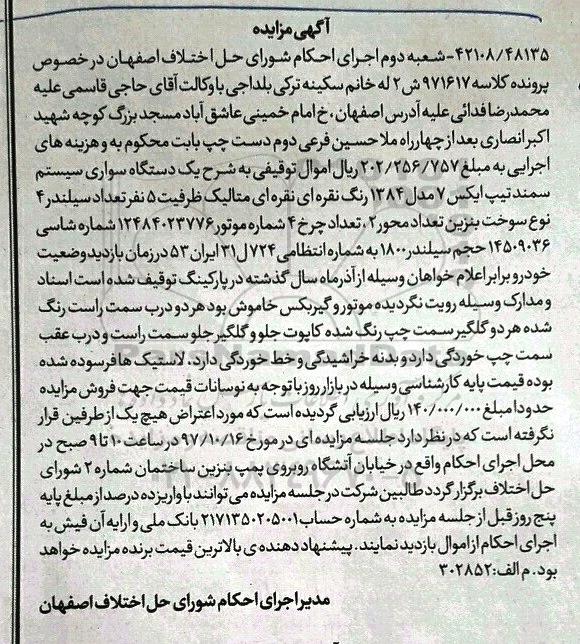 آگهی مزایده
۴۲۱۰۸/۴۸۱۳۵-شعبه دوم اجرای احکام شورای حل اختلاف اصفهان در خصوص
پرونده کلاسه ۹۷۱۶۱۷ ش ۲ له خانم سکینه ترکی بلداجی با وکالت آقای حاجی قاسمی علیه
محمدرضا فدائی علیه آدرس اصفهان، خ امام خمینی عاشق آباد مسجد بزرگ کوچه شهید
اکبر انصاری بعد از چهارراه ملاحسین فرعی دوم دست چپ بابت محکوم به و هزینه های
اجرایی به مبلغ ۲۰۲/۲۵۶/۷۵۷ ریال اموال توقیفی به شرح یک دستگاه سواری سیستم
سمند تیپ ایکس ۷ مدل ۱۳۸۴ رنگ نقره ای نقره ای متالیک ظرفیت ۵ نفر تعداد سیلندر ۴
نوع سوخت بنزین تعداد محور ۲، تعداد چرخ ۴ شماره موتور ۱۲۴۸۴۰۲۳۷۷۶ شماره شاسی
۱۴۵۰۹۰۳۶ حجم سیلندر ۱۸۰۰ به شماره انتظامی ۷۲۴ل۳۱ ایران ۵۳ در زمان بازدید وضعیت
خودرو برابر اعلام خواهان وسیله از آذرماه سال گذشته در پارکینگ توقیف شده است اسناد
و مدارک وسیله رویت نگردیده موتور و گیربکس خاموش بود هر دو درب سمت راست رنگ
شده هر دو گلگیر سمت چپ رنگ شده کاپوت جلو و گلگیر جلو سمت راست و درب عقب
سمت چپ خوردگی دارد و بدنه خراشیدگی و خط خوردگی دارد. لاستیک ها فرسوده شده
بوده قیمت پایه کارشناسی وسیله در بازار روز با توجه به نوسانات قیمت جهت فروش مزایده
حدودا مبلغ ۱۴۰/۰۰۰/۰۰۰ ریال ارزیابی گردیده است که مورد اعتراض هیچ یک از طرفین قرار
نگرفته است که در نظر دارد جلسه مزایده ای در مورخ ۹۷/۱۰/۱۶ در ساعت ۱۰ تا ۹ صبح در
محل اجرای احکام واقع در خیابان آتشگاه روبروی پمپ بنزین ساختمان شماره ۲ شورای
حل اختلاف برگزار گردد طالبین شرکت در جلسه مزایده می توانند با واریز ده درصد از مبلغ پایه
پنج روز قبل از جلسه مزایده به شماره حساب ۲۱۷۱۳۵۰۲۰۵۰۰۱ بانک ملی و ارایه آن فیش به
اجرای احکام از اموال بازدید نمایند. پیشنهاد دهنده ی بالاترین قیمت برنده مزایده خواهد
بود. م الف: ۳۰۲۸۵۲
مدیر اجرای احکام شورای حل اختلاف اصفهان